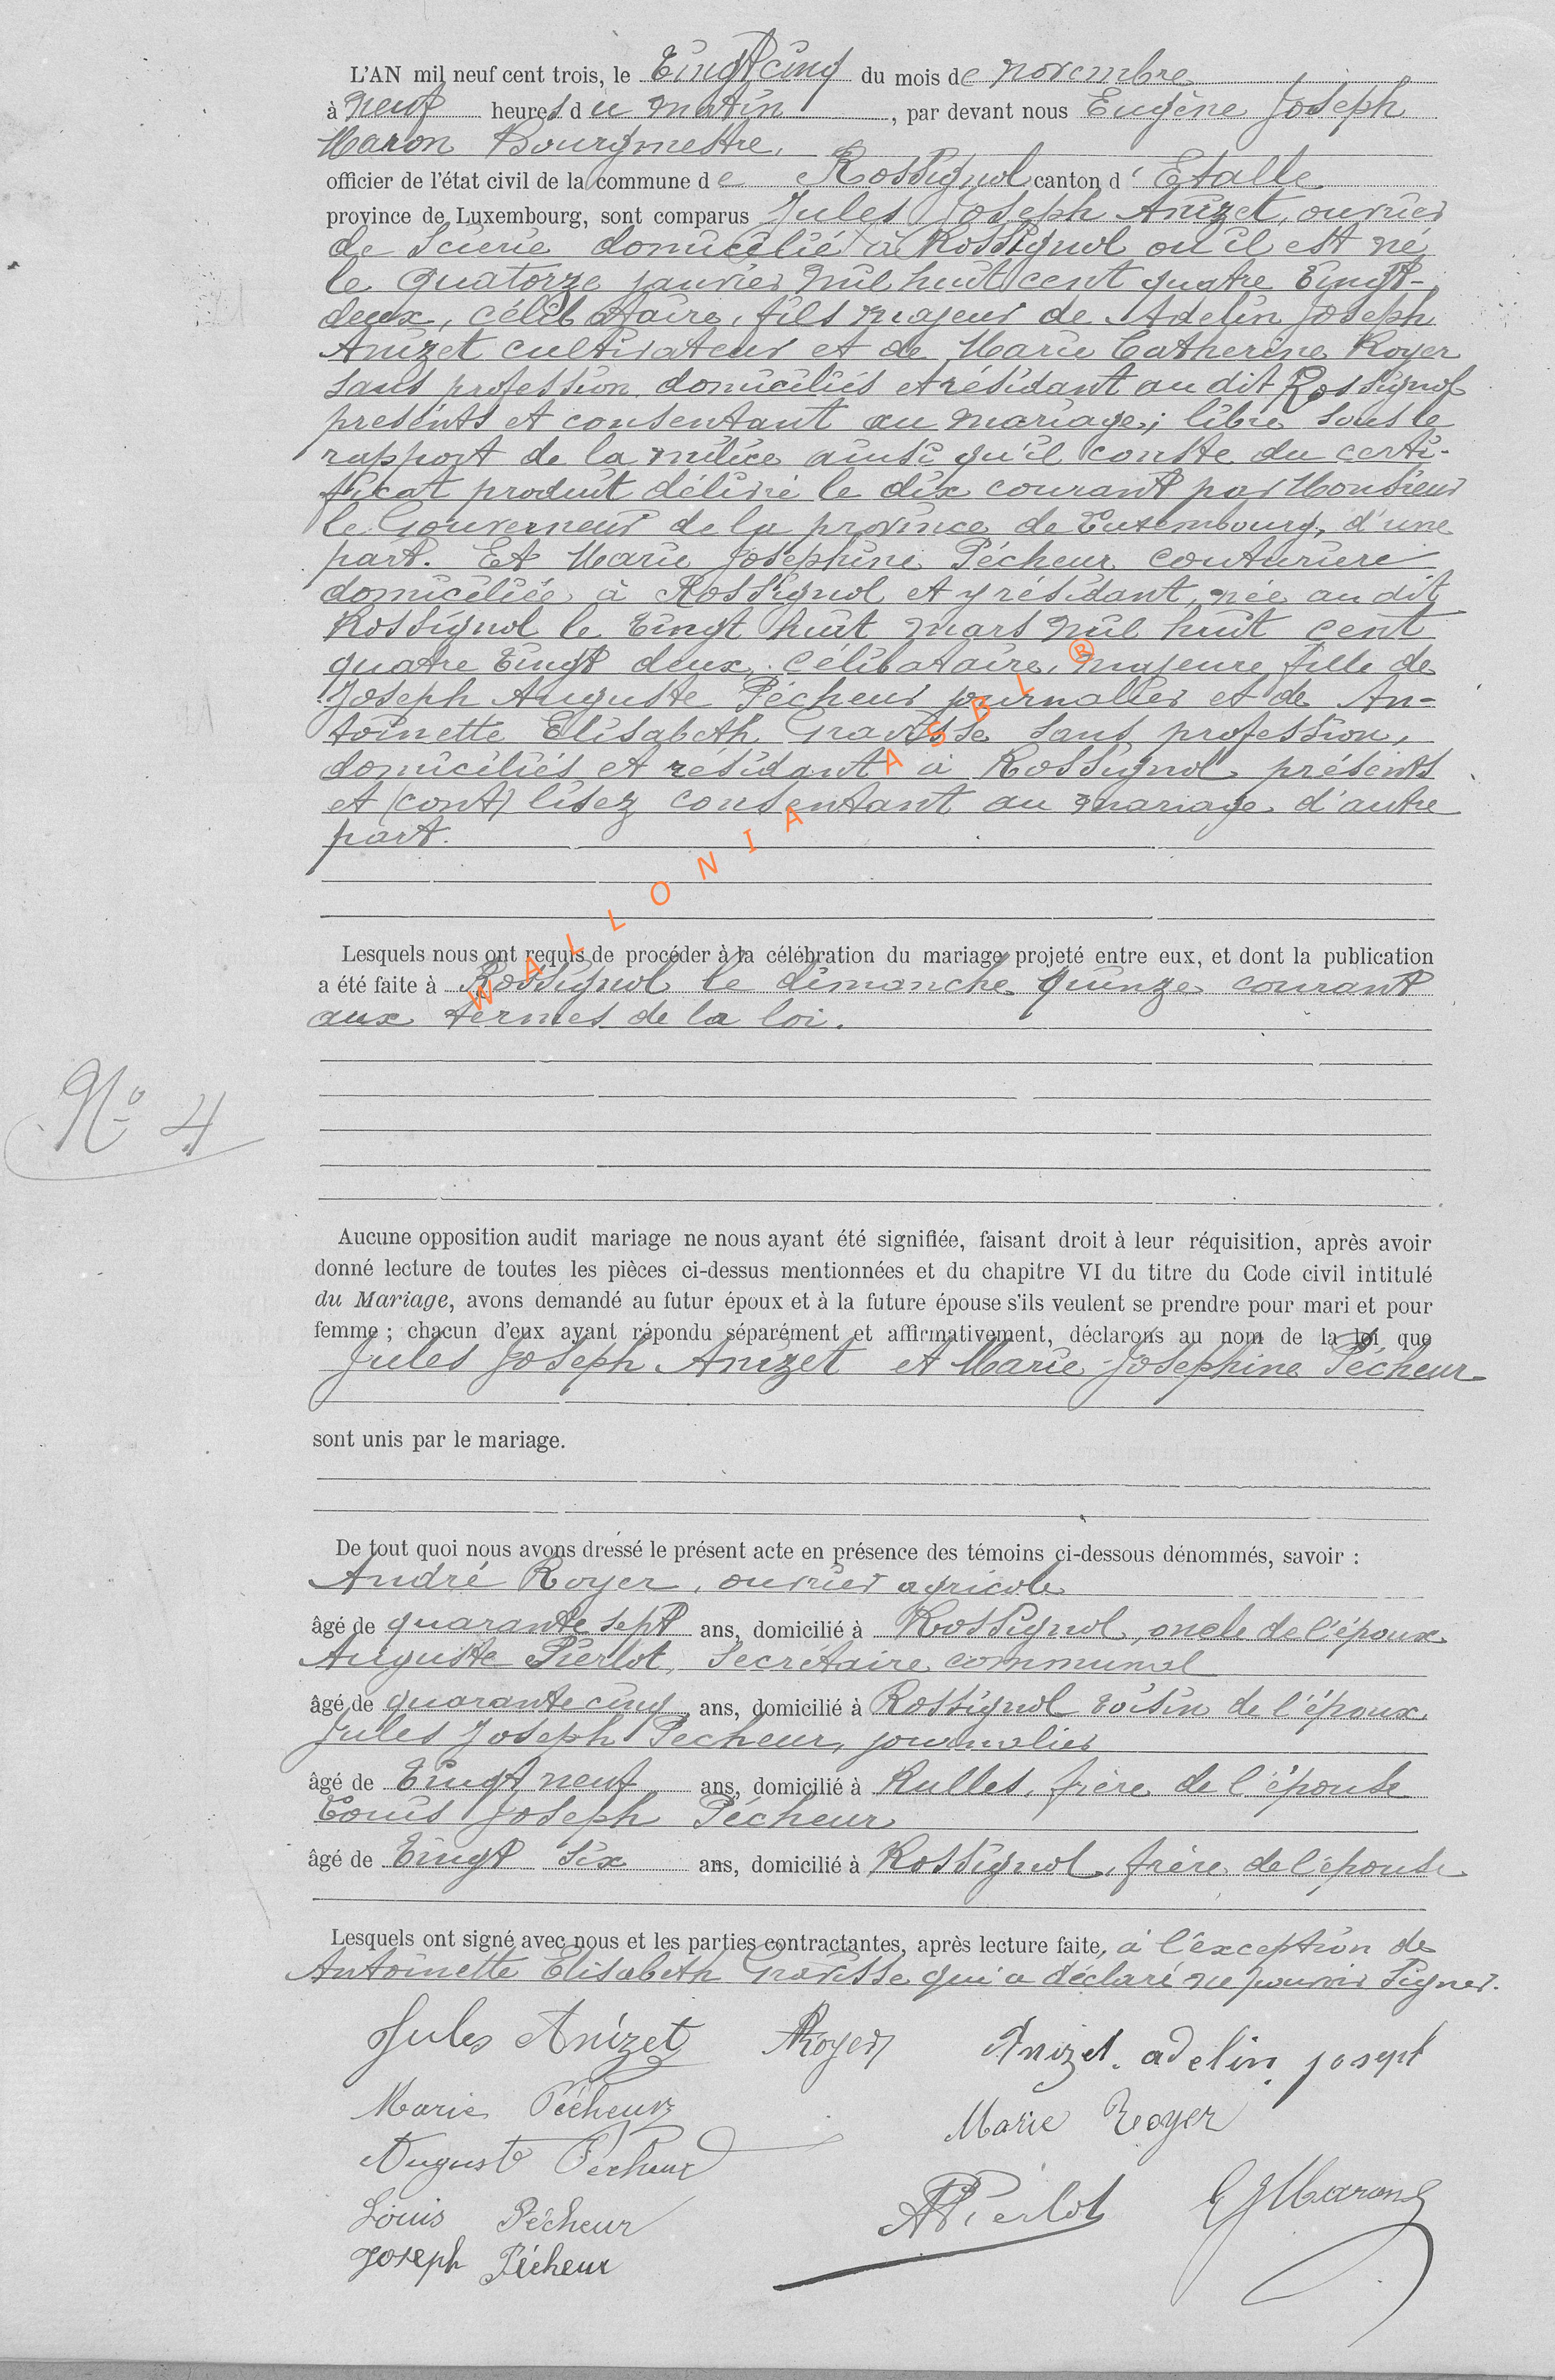 L'AN mil neuf cent trois, le vingt cinq du mois de novembre
à neuf heures du matin, par devant nous Eugène Joseph
Maron Bourgmestre,
officier de l'état civil de la commune de Rossignol canton d'Etalle
province de Luxembourg, sont comparus Jules Joseph Anizet, ouvrier
de scierie domicilié à Rossignol où il est né
le quatorze janvier mil huit cent quatre vingt-
deux, célibataire, fils majeur de Adelin Joseph
Anizet cultivateur et de Marie Catherine Royer
sans profession, domiciliés et résidant au dit Rossignol
présents et consentant au mariage; libre sous le
rapport de la milice ainsi qu'il conste du certi-
ficat produit délivré le dix courant par Monsieur
le Gouverneur de la province de Luxembourg, d'une
part. Et Marie Josephine Pécheur couturière
domiciliée à Rossignol et y résidant, née au dit
Rossignol le vingt huit mars mil huit cent
quatre vingt deux. Célibataire, majeure fille de
Joseph Auguste Pécheur journalier et de An-
toinette Elisabeth Gravisse sans profession,
domiciliés et résidant à Rossignol présents
et (cont) lisez consentant au mariage d'autre
part.
WALLONIA ASBL ®
Lesquels nous ont requis de procéder à la célébration du mariage projeté entre eux, et dont la publication
a été faite à Rossignol le dimanche quinze courant
aux termes de la loi.
N° 4
Aucune opposition audit mariage ne nous ayant été signifiée, faisant droit à leur réquisition, après avoir
donné lecture de toutes les pièces ci-dessus mentionnées et du chapitre VI du titre du Code civil intitulé
du Mariage, avons demandé au futur époux et à la future épouse s'ils veulent se prendre pour mari et pour
femme ; chacun d'eux ayant répondu séparément et affirmativement, déclarons au nom de la loi que
Jules Joseph Anizet et Marie Josephine Pécheur
sont unis par le mariage.
De tout quoi nous avons dressé le présent acte en présence des témoins ci-dessous dénommés, savoir :
André Royer, ouvrier agricole
âgé de quarante sept ans, domicilié à Rossignol, oncle de l'époux
Auguste Pierlot, secrétaire communal
âgé de quarante cinq ans, domicilié à Rossignol voisin de l'époux,
Jules Joseph Pecheur, journalier
âgé de vingt neuf ans, domicilié à Rulles, frère de l'épouse
Louis Joseph Pécheur
âgé de vingt six ans, domicilié à Rossignol, frère de l'épouse
Lesquels ont signé avec nous et les parties contractantes, après lecture faite, à l'exception de
Antoinette Elisabeth Gravisse qui a déclaré ne pouvoir signer.
Jules Anizet ARoyer Anizet. adelin. joseph
Marie Pécheur Marie Royer
Auguste Pecheur
Louis Pécheur APierlot EJMaron
Joseph Pécheur